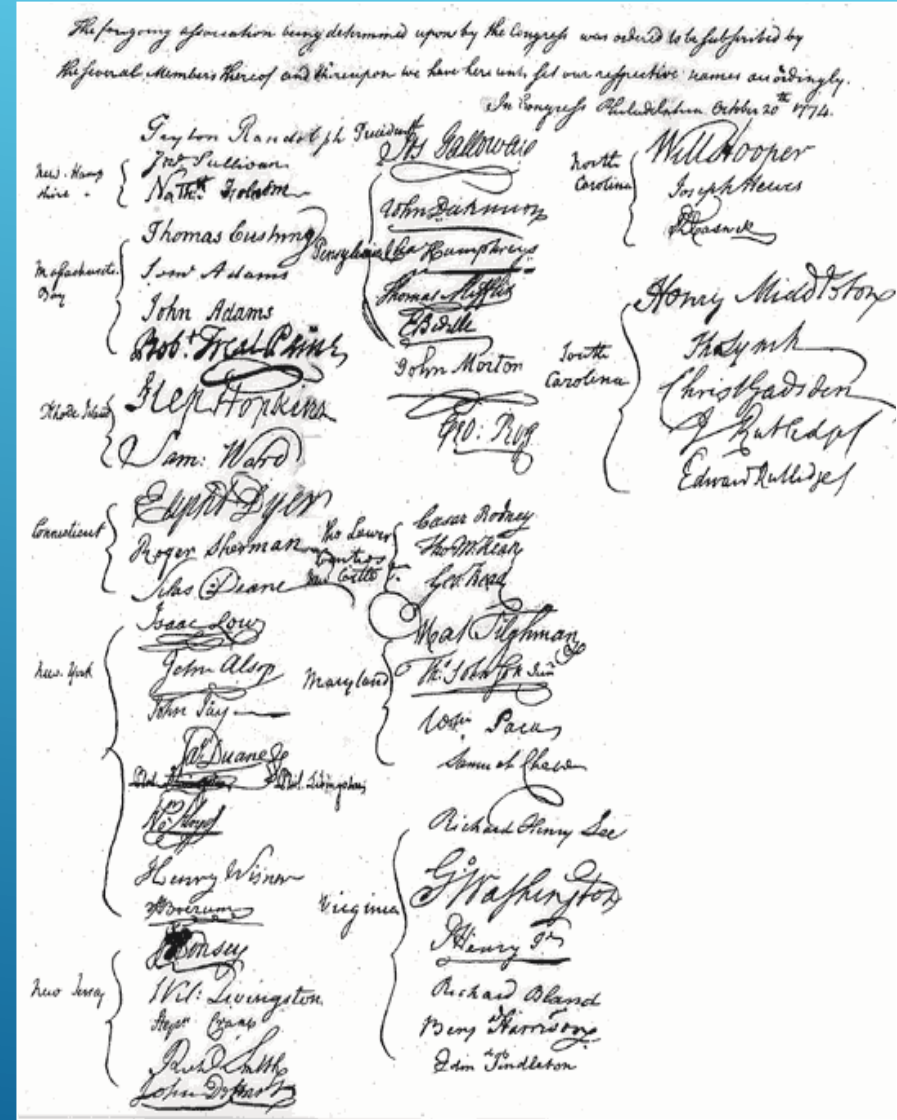 The foregoing association being determined upon by the Congress was ordered to be subscribed by
the several Members thereof and thereupon we have here unto set our respective names accordingly.
In Congress Philadelphia October 20th 1774.
Peyton Randolph President
New Hampshire
Jno Sullivan
Nathl Folsom
Massachusetts Bay
Thomas Cushing
Saml Adams
John Adams
Robt Treat Paine
Rhode Island
Step Hopkins
Sam: Ward
Connecticut
Elipht Dyer
Roger Sherman
Silas Deane
New York
Isaac Low
John Alsop
John Jay
Jas Duane
Phil. Livingston
Wm Floyd
Henry Wisner
S: Boerum
New Jersey
J Kinsey
Wil: Livingston
Stepn Crane
Richd Smith
John De Hart
Pensylvania
Jos Galloway
John Dickinson
Cha Humphreys
Thomas Mifflin
E Biddle
John Morton
Geo: Ross
The Lower Counties New Castle
Cæsar Rodney
Tho M:Kean
Geo: Read
Maryland
Mat Tilghman
Ths Johnson Junr
Wm Paca
Samuel Chase
Virginia
Richard Henry Lee
Go Washington
P Henry Jr
Richard Bland
Benj Harrison
Edmd Pendleton
North Carolina
Will Hooper
Joseph Hewes
R Caswell
South Carolina
Henry Middleton
Tho Lynch
Christ Gadsden
J Rutledge
Edward Rutledge